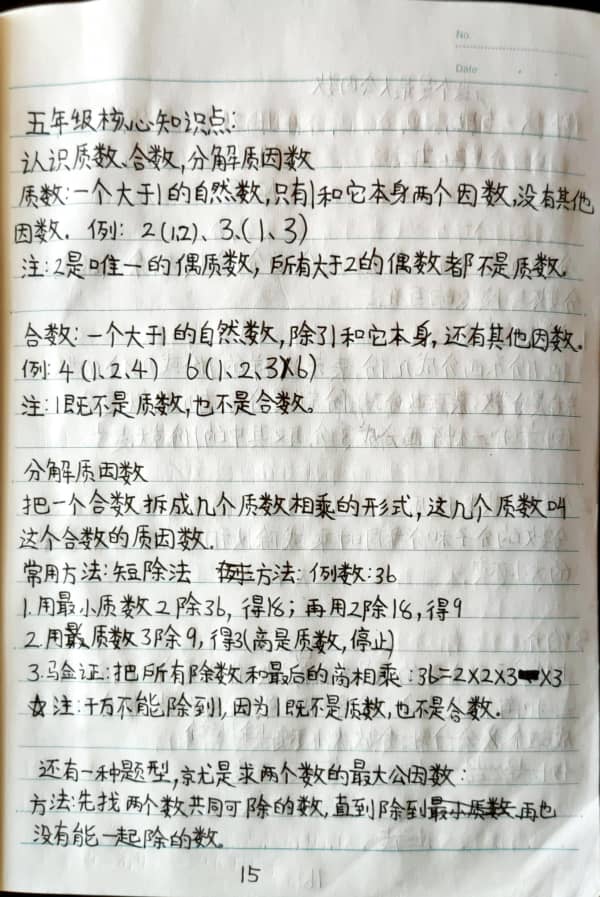 No.
Date
五年级核心知识点:
认识质数、合数,分解质因数
质数:一个大于1的自然数,只有1和它本身两个因数,没有其他
因数. 例: 2(1,2)、3、(1、3)
注:2是唯一的偶质数, 所有大于2的偶数都不是质数。
合数:一个大于1的自然数,除了1和它本身,还有其他因数.
例: 4(1、2、4) 6(1、2、3、6)
注:1既不是质数,也不是合数。
分解质因数
把一个合数拆成几个质数相乘的形式,这几个质数叫
这个合数的质因数.
常用方法:短除法 方法: 例数:36
1.用最小质数2除36, 得18; 再用2除18,得9
2.用最质数3除9,得3(商是质数,停止)
3.验证:把所有除数和最后的商相乘:36=2×2×3×3
☆注:千万不能除到1,因为1既不是质数,也不是合数.
还有一种题型,就是求两个数的最大公因数:
方法:先找两个数共同可除的数,直到除到最小质数再也
没有能一起除的数。
15